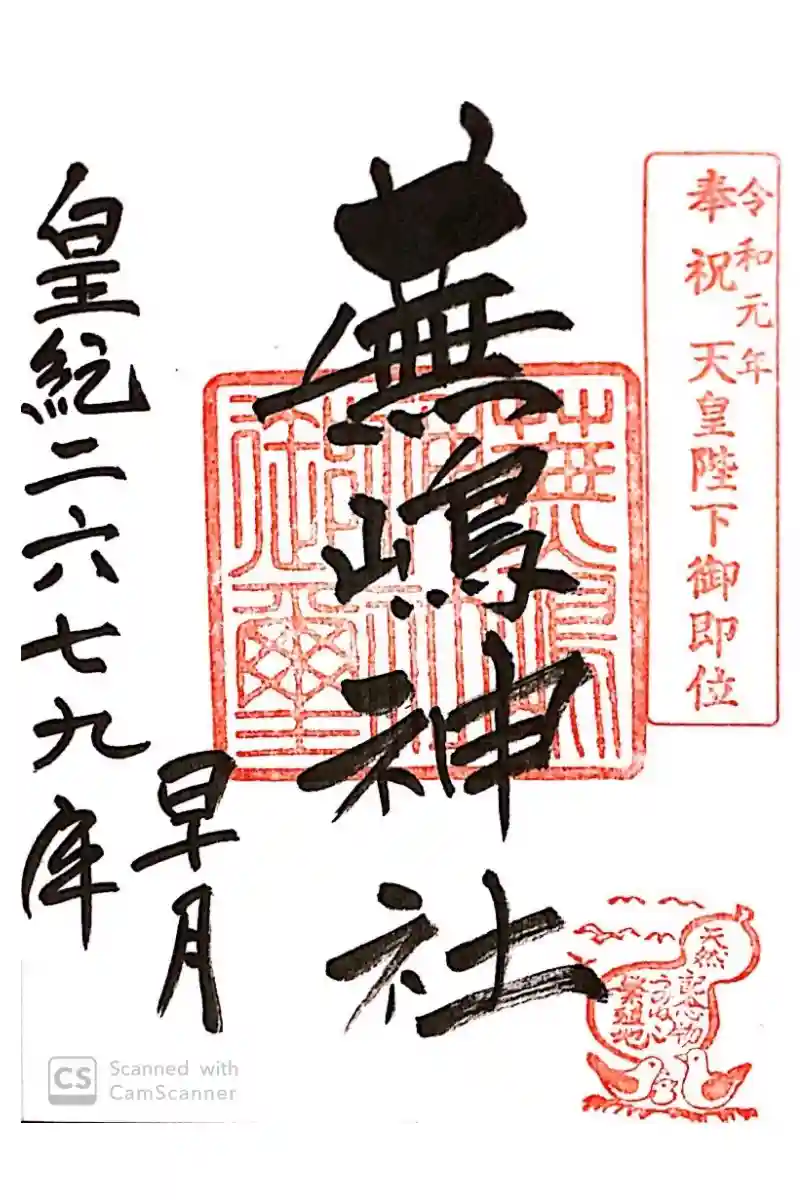 令和元年
奉祝 天皇陛下御即位
蕪嶋神社
蕪嶋神社御璽
早月
皇紀二六七九年
天然
繁殖地
CS Scanned with
CamScanner